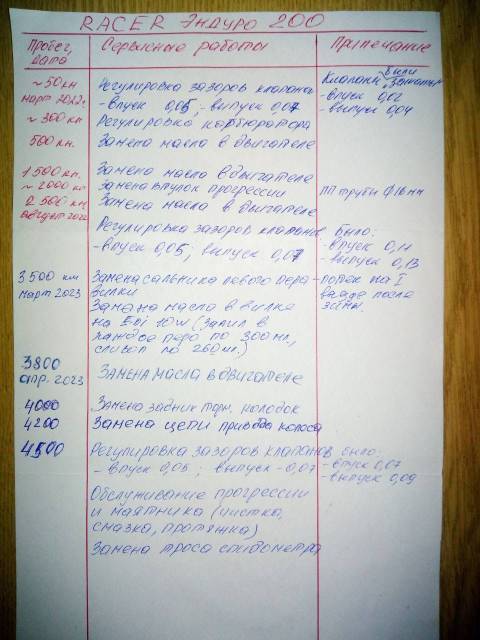 RACER Эндуро 200
Пробег, Сервисные работы Примечание
дата
~50 км Регулировка зазоров клапанов Клапаны были зажаты
март 2022г. - впуск 0,05, - выпуск 0,07 - впуск 0,02
~300 км Регулировка карбюратора - выпуск 0,04
500 км. Замена масла в двигателе
1500 км. Замена масла в двигателе
~2000 км Замена втулок прогрессии ПП трубы Ф16 мм
2500 км Замена масла в двигателе
август 2022
Регулировка зазоров клапанов Было:
- впуск 0,05; выпуск 0,07 - впуск 0,11
- выпуск 0,13
3500 км Замена сальника левого пера - потек на I
март 2023 вилки выезде после
Замена масла в вилке зимы.
на E-Oi 10W (Залил в
каждое перо по 300 мл,
слил по 260 мл.)
3800 Замена масла в двигателе
апр. 2023
4000 Замена задних торм. колодок
4200 Замена цепи привода колеса
4500 Регулировка зазоров клапанов было:
- впуск 0,05; выпуск - 0,07 - впуск 0,07
- выпуск 0,09
Обслуживание прогрессии
и маятника (чистка,
смазка, протяжка)
Замена троса спидометра